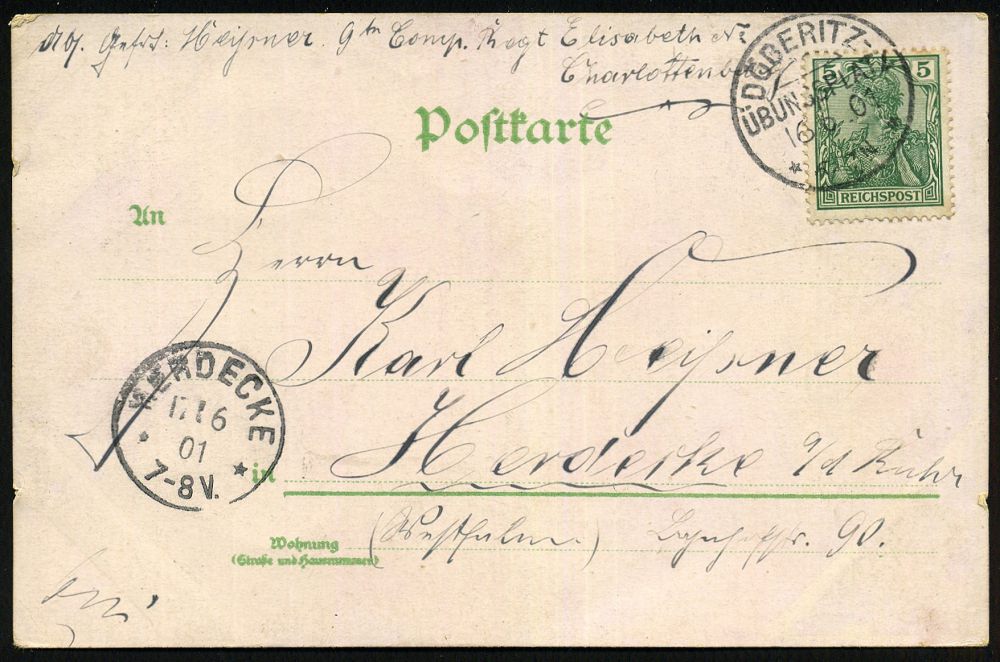 Abs. Gefrt: Heißner. 9te Comp. Regt Elisabeth No
Charlottenbu
Postkarte
DÖBERITZ-
ÜBUNGSPLATZ
16 6 01
5 5
REICHSPOST
An
Herrn
Karl Heißner
HERDECKE
17 6
01
7-8 V.
in Herdecke a/d Ruhr
Wohnung
(Straße und Hausnummer)
(Westfalen.) Bahnhofstr. 90.